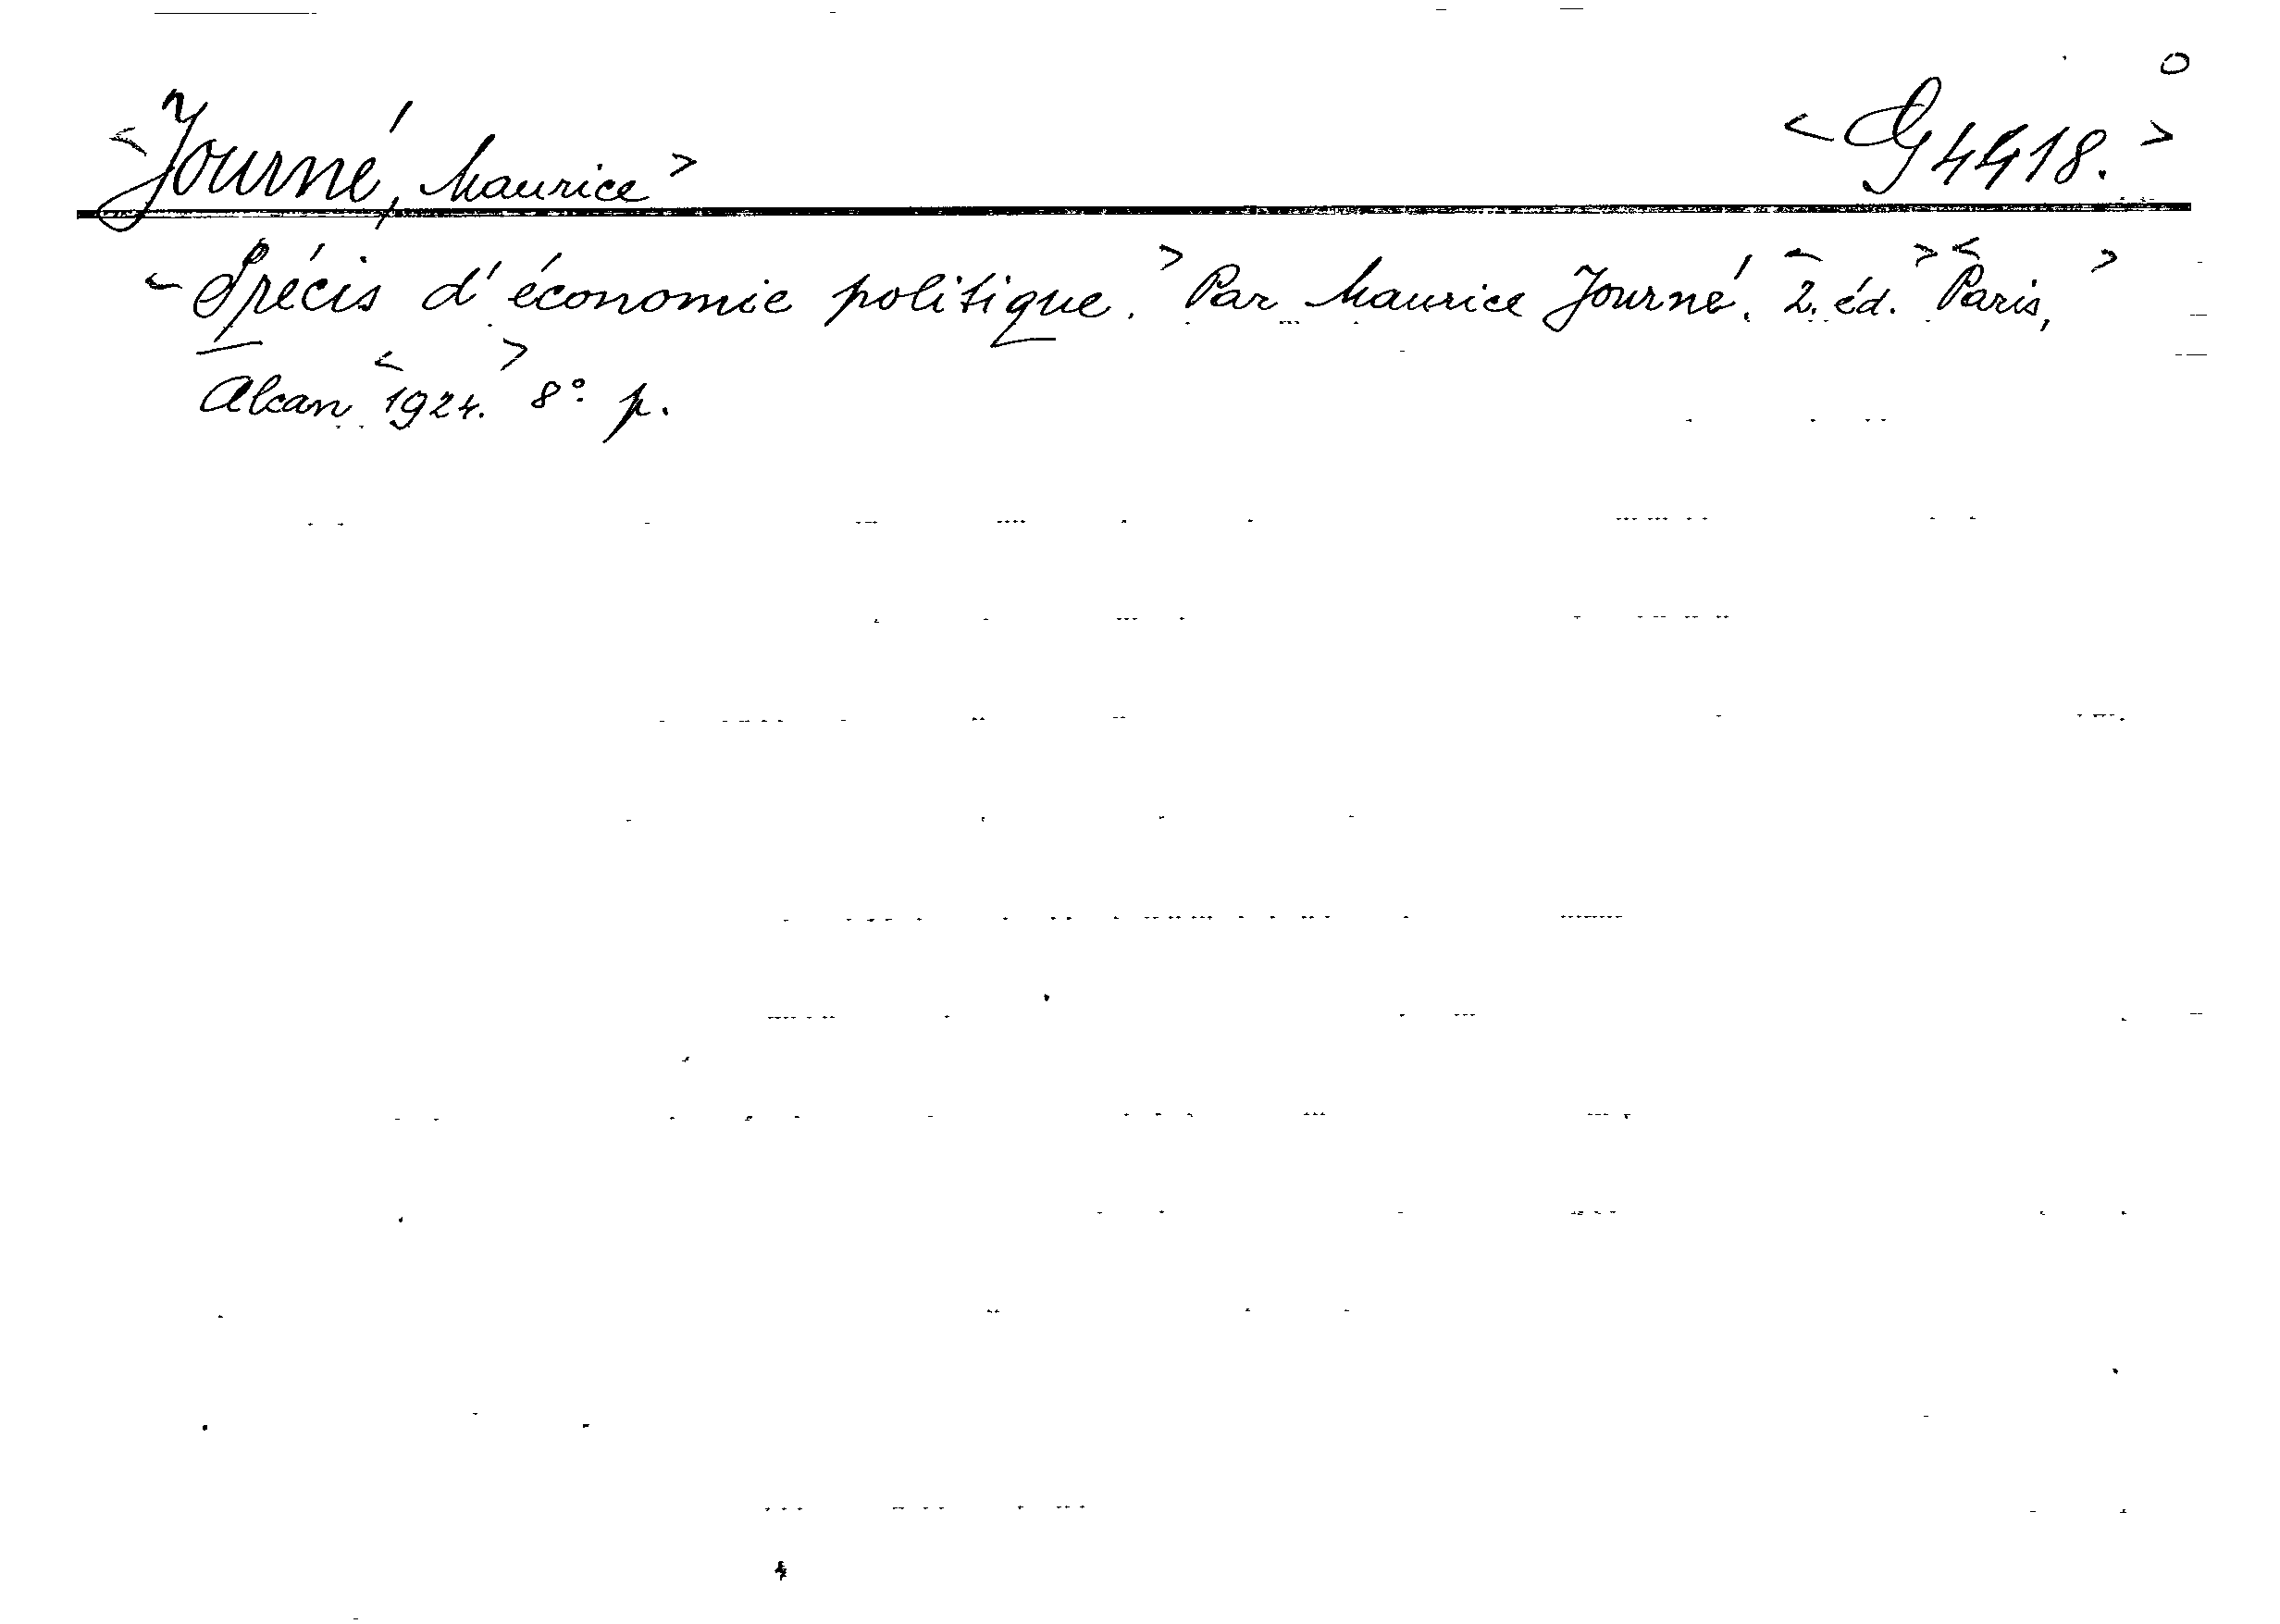 <Journé, Maurice> <G 4418.>
<Précis d'économie politique.> Par Maurice Journé. <2. éd.> <Paris,>
Alcan <1924.> 8° p.